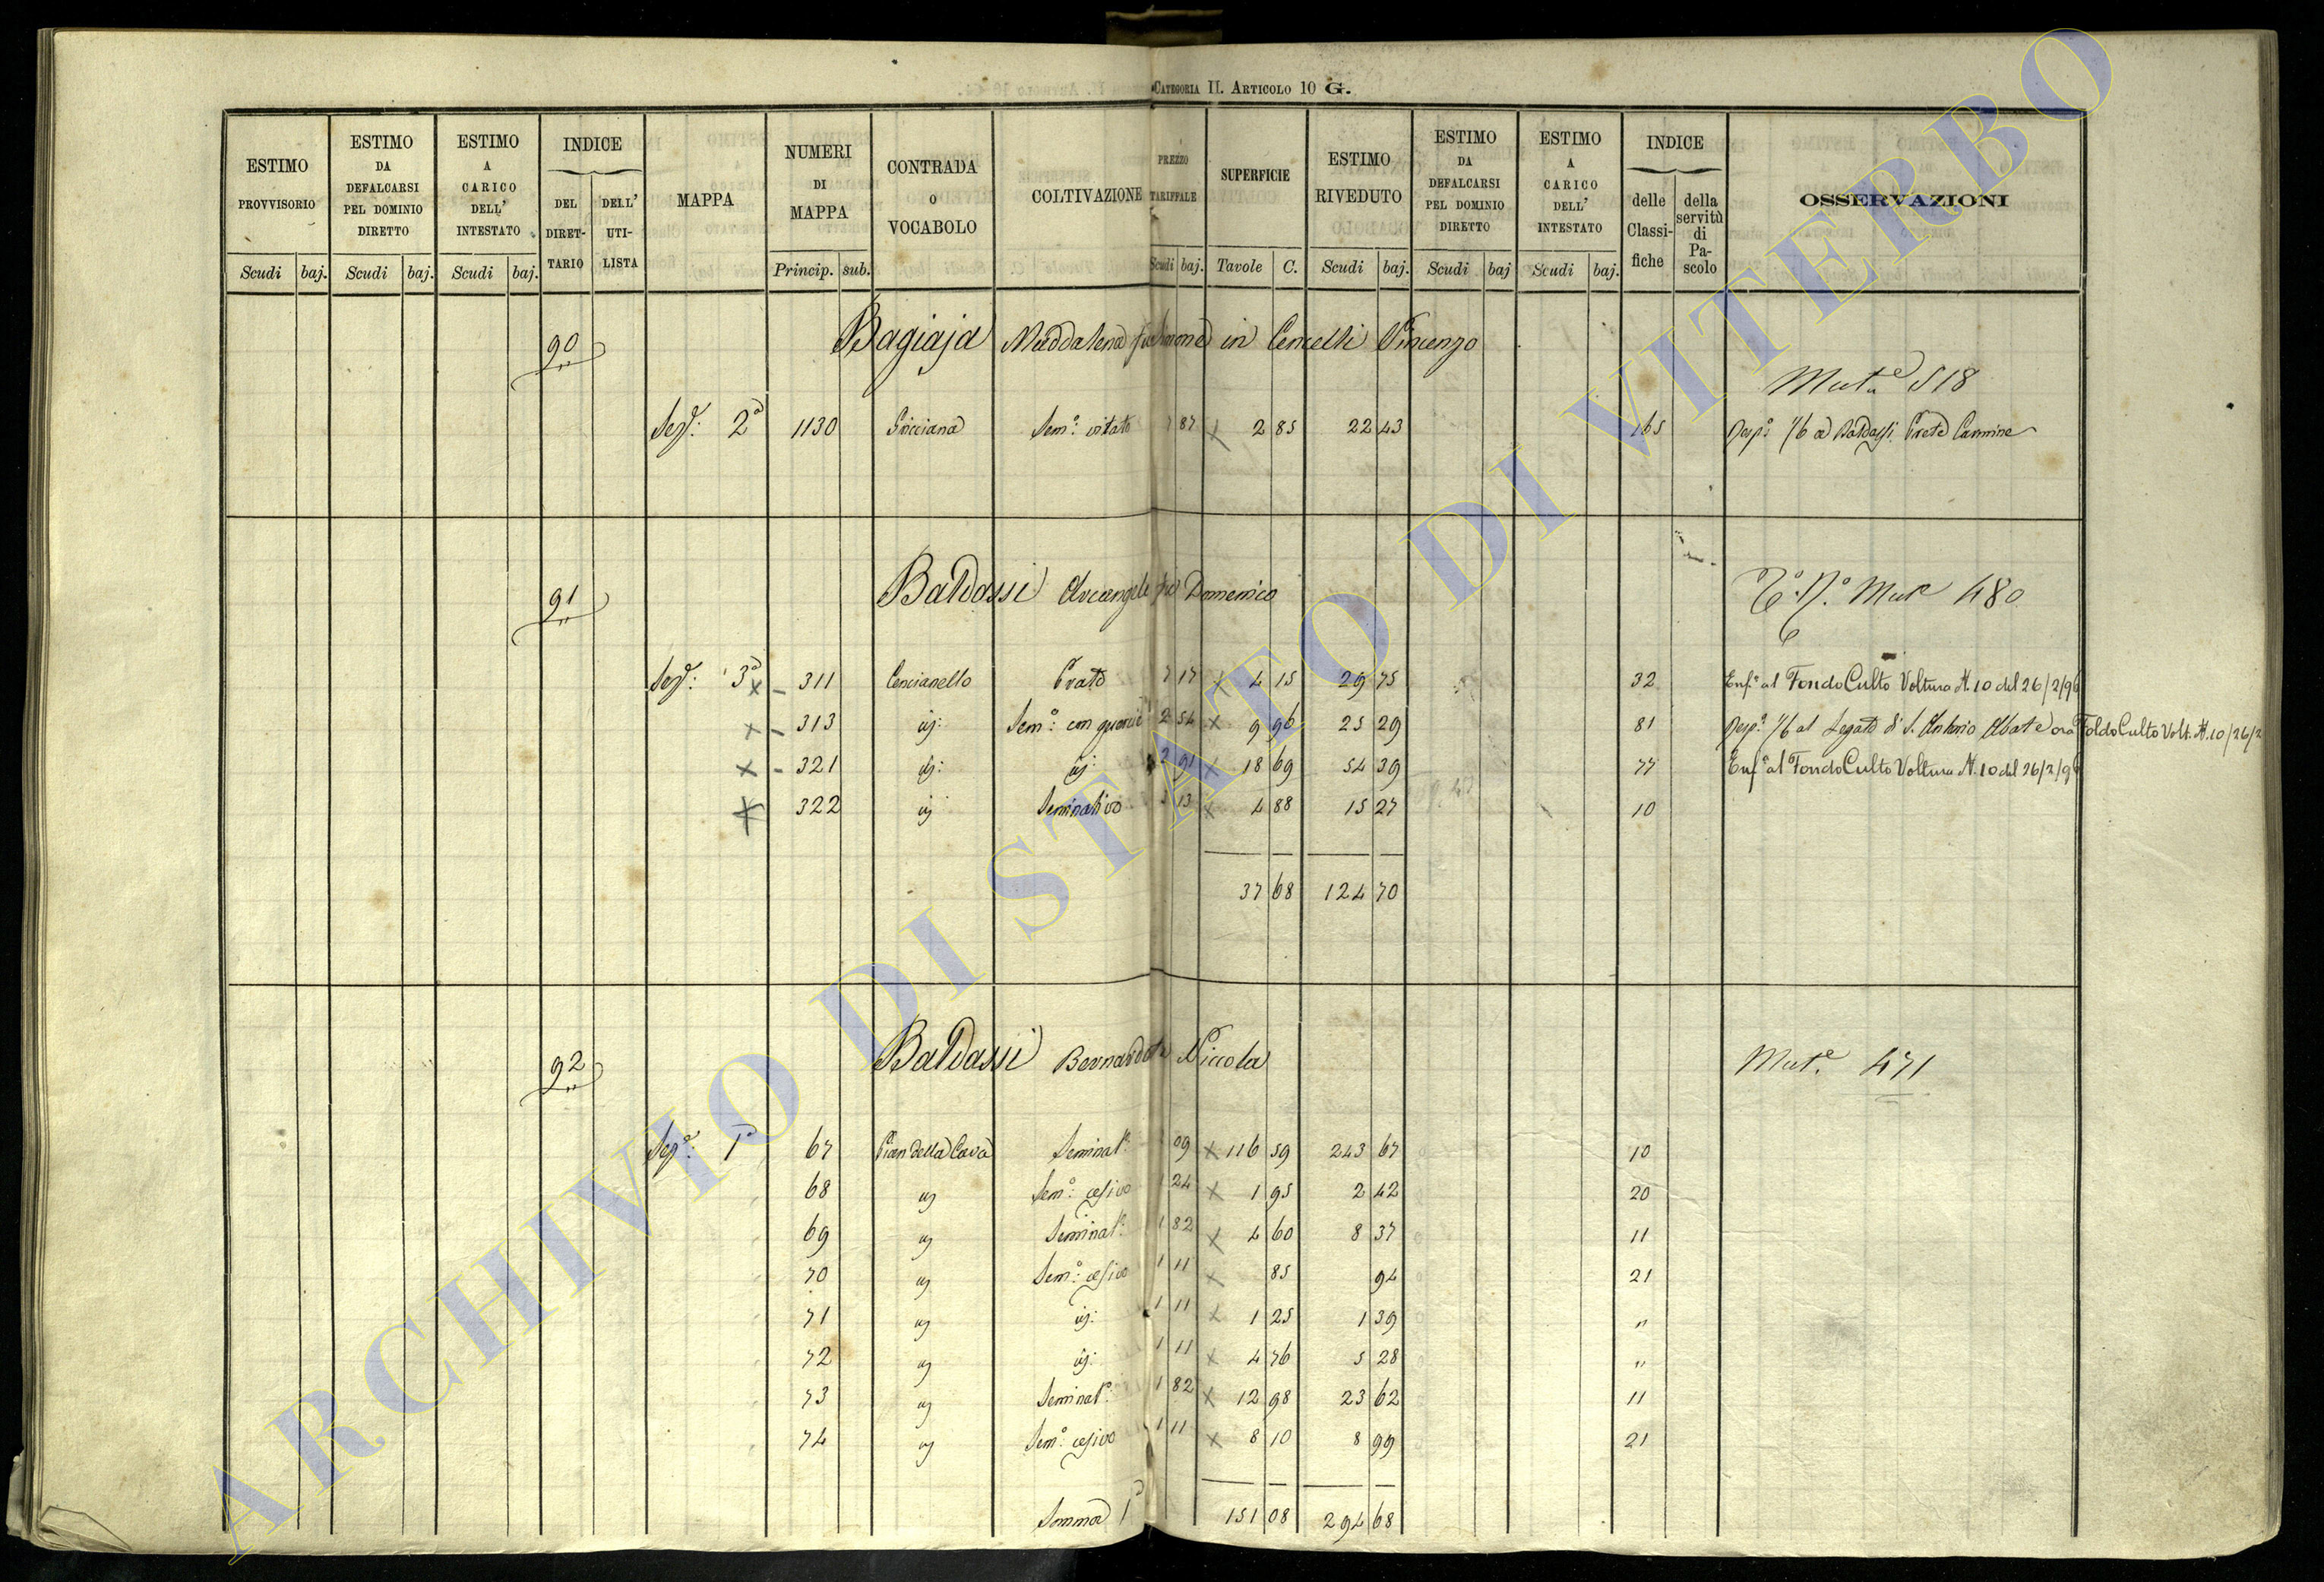 CATEGORIA II. ARTICOLO 10 G.
ESTIMO PROVVISORIO
ESTIMO DA DEFALCARSI PEL DOMINIO DIRETTO
ESTIMO A CARICO DELL' INTESTATO
INDICE
DEL DIRET-TARIO
DELL' UTI-LISTA
MAPPA
NUMERI DI MAPPA
CONTRADA O VOCABOLO
COLTIVAZIONE
PREZZO TARIFFALE
SUPERFICIE
ESTIMO RIVEDUTO
ESTIMO DA DEFALCARSI PEL DOMINIO DIRETTO
ESTIMO A CARICO DELL' INTESTATO
INDICE
delle Classi-fiche
della servitù di Pa-scolo
OSSERVAZIONI
Scudi baj. Scudi baj. Scudi baj. Princip. sub. Scudi baj. Tavole C. Scudi baj. Scudi baj Scudi baj.
90 Bagiaja Maddalena in Cencelli Vincenzo
Mut.e 518
Sez.: 2a 1130 Sem.o: vitato 7 87 x 2 85 22 43 165 1/6 a Baldassi Prete Carmine
91 Baldassi Arcangelo fu Domenico
Mut.e 480
Sez.: 3a x - 311 Cencianello Prato 7 17 x 4 15 29 75 32 Enf.o al Fondo Culto Voltura N. 10 del 26/2/96
x - 313 id: Sem.o con querce 2 54 x 9 96 25 29 81 1/6 al Legato di S. Antonio Abate ora Foldo Culto Volt. N. 10/26/2
x - 321 id: id: 2 91 x 18 69 54 39 77 Enf.o al Fondo Culto Voltura N. 10 del 26/2/96
x 322 id Seminativo 3 13 x 4 88 15 27 10
37 68 124 70
92 Baldassi Bernardo di Niccola
Mut.e 471
Sez.a: 1a 67 Pian della Cava Seminat.o 09 x 116 59 243 67 10
68 id Sem.o: cesivo 1 24 x 1 95 2 42 20
69 id Seminat.o 1 82 x 4 60 8 37 11
70 id Sem.o: cesivo 1 11 x 85 94 21
71 id id: 1 11 x 1 25 1 39 "
72 id id: 1 11 x 4 76 5 28 "
73 id Seminat.o 1 82 x 12 98 23 62 11
74 id Sem.o: cesivo 1 11 x 8 10 8 99 21
Somma 1a 151 08 294 68
ARCHIVIO DI STATO DI VITERBO